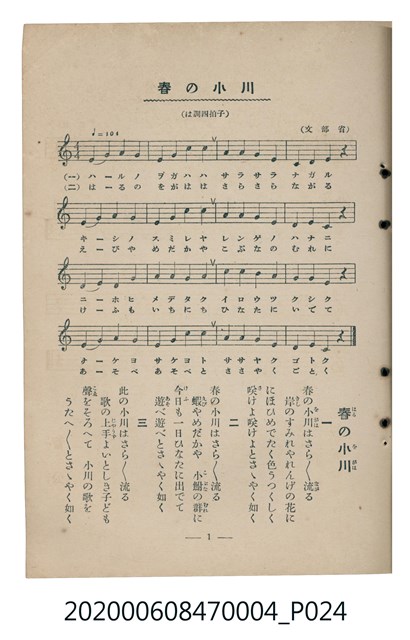 春の小川
(は調四拍子)
(文部省)
♩=104
(一) ハールノ ヲガハハ サラサラ ナガル
(二) はーるの をがはは さらさら ながる
キーシノ スミレヤ レンゲノ ハナニ
えーびや めだかや こぶなの むれに
ニーホヒ メデタク イロウツ クシク
けーふも いちにち ひなたに いでて
サーケヨ サケヨト ササヤク ゴトク
あーそべ あそべと ささやく ごとく
春の小川
一
春の小川はさら〱流る
岸のすみれやれんげの花に
にほひめでたく色うつくしく
咲けよ咲けよとさゝやく如く
二
春の小川はさら〱流る
蝦やめだかや 小鮒の群に
今日も一日ひなたに出でて
遊べ遊べとさゝやく如く
三
此の小川はさら〱流る
歌の上手よいとしき子ども
聲をそろへて 小川の歌を
うたへ〱とさゝやく如く
— 1 —
202000608470004_P024